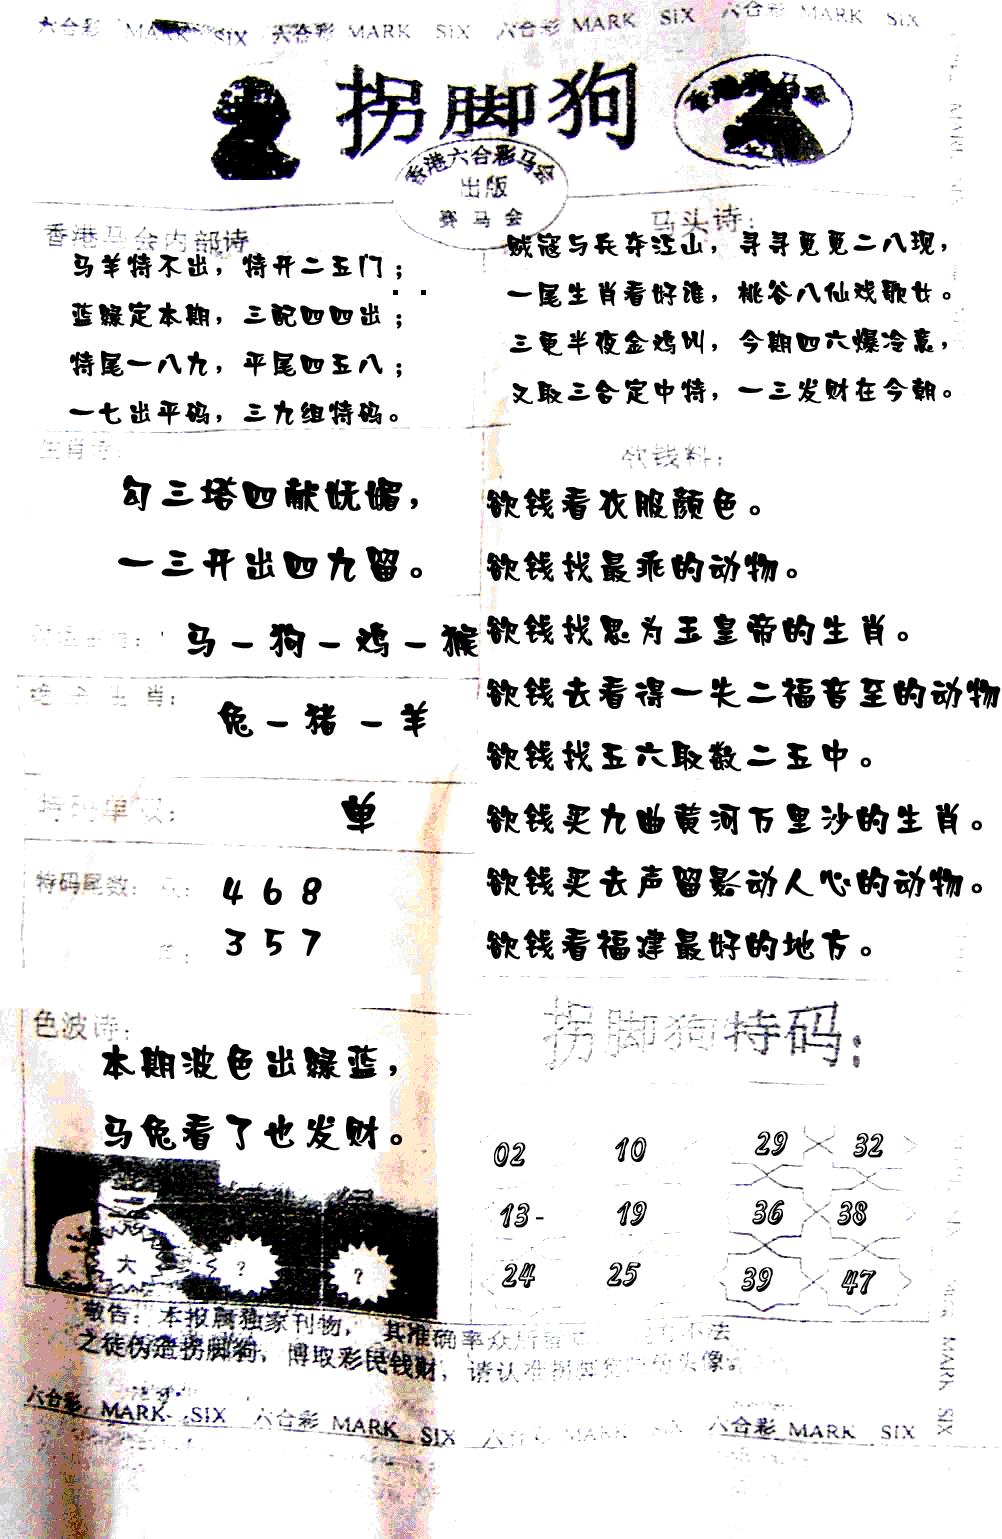 六合彩 MARK SIX 六合彩 MARK SIX 六合彩 MARK SIX 六合彩 MARK SIX
拐脚狗
香港六合彩马会
出版
赛马会
香港马会内部诗
马羊特不出，特开二五门；
蓝绿定本期，三配四四出；
特尾一八九，平尾四五八；
一七出平码，三九组特码。
马头诗：
贼寇与兵夺江山，寻寻觅觅二八现，
一尾生肖看好谁，桃谷八仙戏歌女。
三更半夜金鸡叫，今期四六爆冷意，
又取三合定中特，一三发财在今朝。
生肖诗：
勾三塔四献妩媚，
一三开出四九留。
马－狗－鸡－猴
绝杀生肖：
兔－猪－羊
特码单双：
单
特码尾数：
4 6 8
3 5 7
色波诗：
本期波色出绿蓝，
马兔看了也发财。
大 ? ?
欲钱料：
欲钱看衣服颜色。
欲钱找最乖的动物。
欲钱找思为玉皇帝的生肖。
欲钱去看得一失二福音至的动物
欲钱找五六取数二五中。
欲钱买九曲黄河万里沙的生肖。
欲钱买去声留影动人心的动物。
欲钱看福建最好的地方。
拐脚狗特码：
02 10 29 32
13- 19 36 38
24 25 39 47
敬告：本报属独家刊物，其准确率众所 不法
之徒伪造拐脚狗，博取彩民钱财，请认准拐脚 头像
六合彩 MARK SIX 六合彩 MARK SIX 六合彩 MARK SIX 六合彩 MARK SIX
MARK SIX